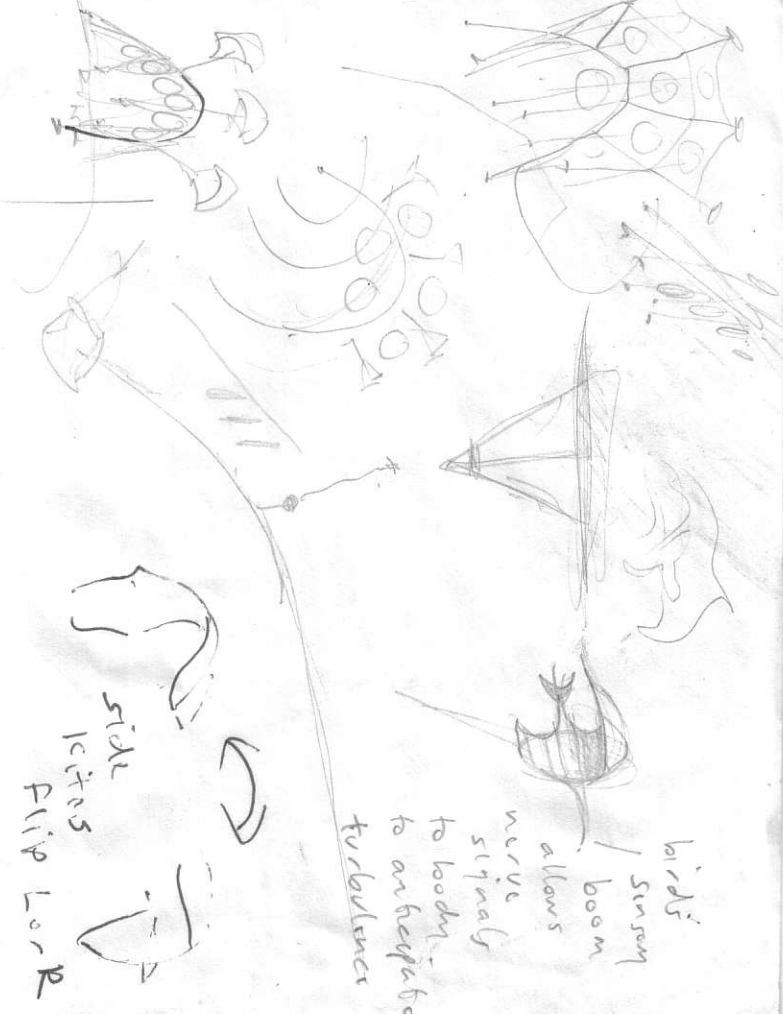 birds'
sensory
boom
allows
nerve
signals
to body
to anticipate
turbulence
side
kites
Flip